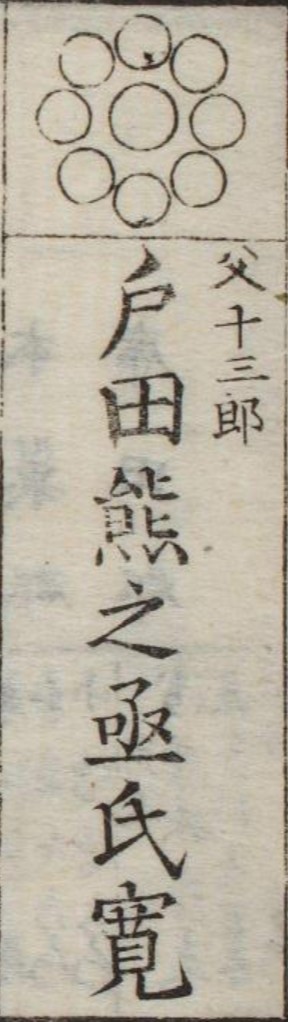 父十三郎
戸田熊之亟氏寛